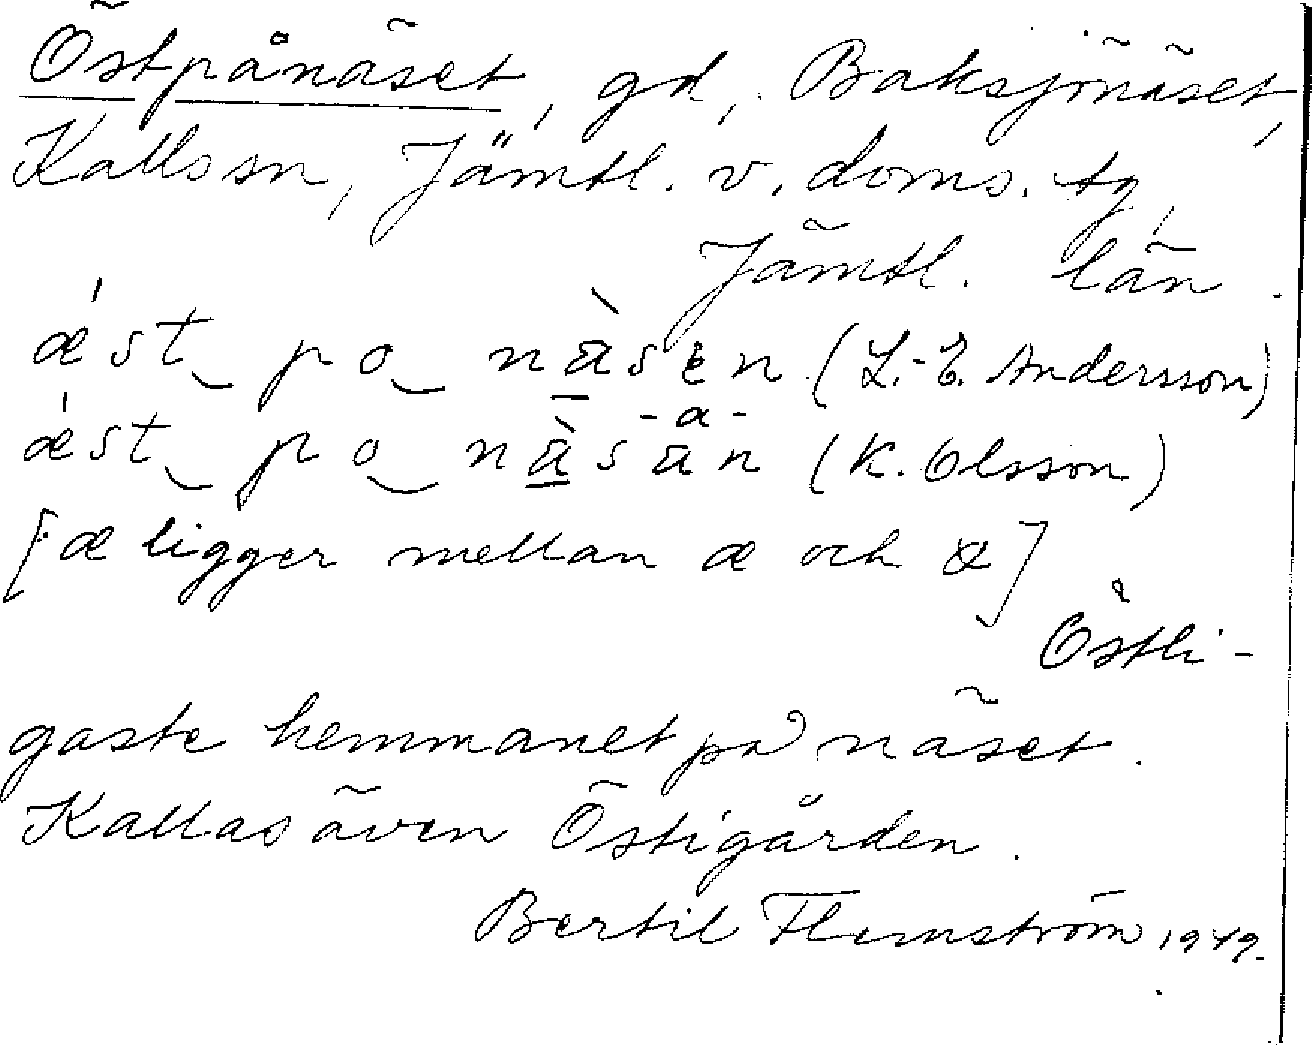 Östpånäset, gd, Baksjönäset,
Kalls sn, Jämtl. v. doms. tg,
Jämtl. län.
ǽst‿ po‿ nä̀sen (L.-E. Andersson)
-a-
ǽst‿ po‿ nä̀sän (K. Olsson)
[æ ligger mellan æ och œ]
Östli-
gaste hemmanet på näset.
Kallas även Östigården.
Bertil Flemström 1949.